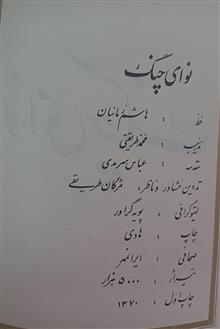 نوای چنگ
خط : هاشم زمانیان
تذهیب : محمد طریقتی
مقدمه : عباس سرمدی
تدوین مشاور و ناظر : مژگان طریقتی
لیتوگرافی : پویه گراور
چاپ : هادی
صحافی : ایرانمهر
تیراژ : ۵۰۰۰ هزار
چاپ اول : ۱۳۷۰